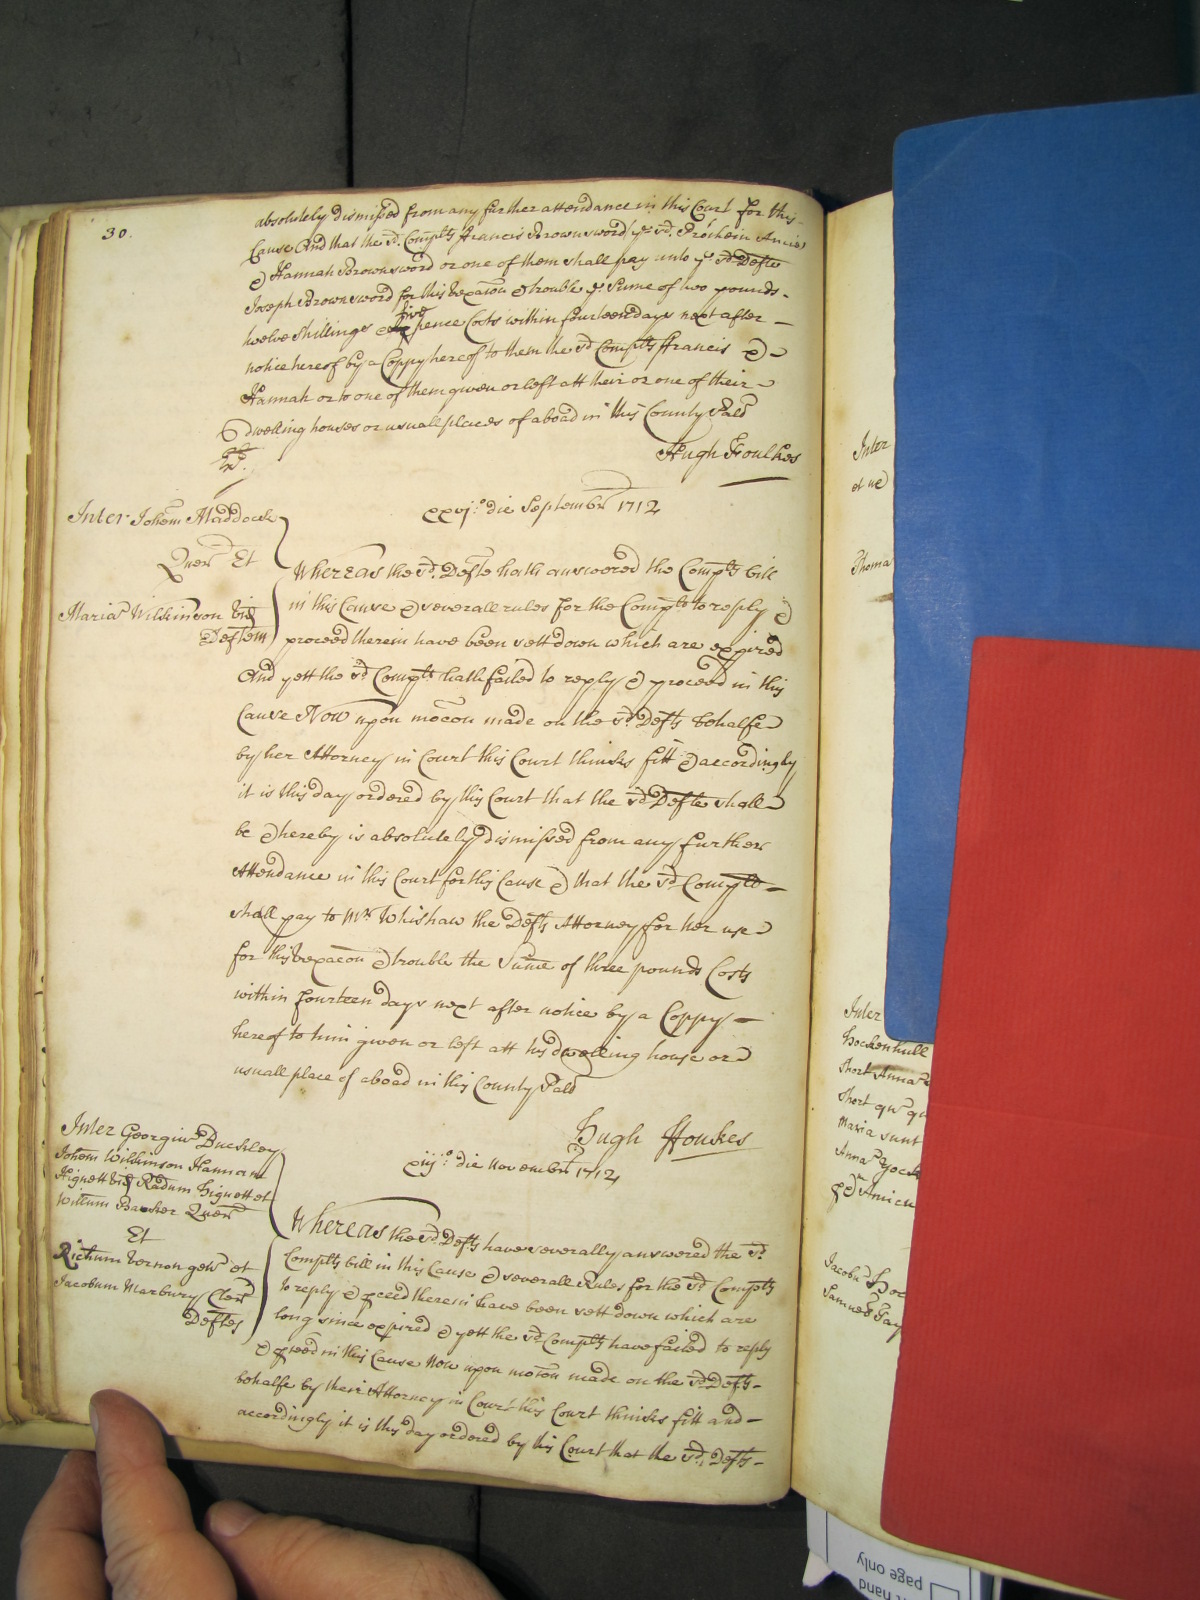 30.
absolutely dismissed from any further attendance in this Court for this
Cause And that the sd. Complts Francis Brownsword ye sd. Prochein Amie
& Hannah Brownsword or one of them shall pay unto ye sd Defte
Joseph Brownsword for his vexacon & trouble ye sume of two pounds
twelve shillings & five pence Costs within fourteen days next after
notice hereof by a Coppy hereof to them the sd Complts Francis &
Hannah or to one of them given or left att their or one of their
dwelling houses or usuall places of aboad in this County Pald
Hugh Foulkes
xxvj.o die Septembr 1712
Inter Johem Maddock
Quer Et
Mariam Wilkinson vid
Deftem
Whereas the sd. Defte hath answered the Complts bill
in this Cause & severall rules for the Complt to reply &
proceed therein have been sett down which are expired
And yett the sd Complt hath failed to reply & proceed in this
Cause Now upon mocon made on the sd Defts behalfe
by her Attorney in Court this Court thinks fitt & accordingly
it is this day ordered by this Court that the sd Defte shall
be & hereby is absolutely dismissed from any further
Attendance in this Court for this Cause & that the sd Complt
shall pay to Mr Whishaw the Defts Attorney for her use
for this vexacon & trouble the Sume of three pounds Costs
within fourteen days next after notice by a Coppy
hereof to him given or left att his dwelling house or
usuall place of aboad in this County Pald
Hugh Foulkes
xiij.o die Novembr 1712
Inter Georgiu Buckley
Johem Wilkinson Hannam
Hignett vid Radum Hignett et
Willum Barker Quer
Et
Richum Vernon gen et
Jacobum Marbury Cler
Deftes
Whereas the sd. Defts have severally answered the sd.
Complts bill in this Cause & severall Rules for the sd Complts
to reply & pceed therein have been sett down which are
long since expired & yett the sd Complts have failed to reply
& pceed in this Cause Now upon mocon made on the sd Defts
behalfe by their Attorney in Court this Court thinks fitt and
accordingly it is this day ordered by this Court that the sd. Defts
Inter
et ne
Thoma
Inter
Hockenhull
Short Anna
Short qu
Maria sunt
Anna
Amicu
Jacobu Hoc
Samuel Gay
hand
page only